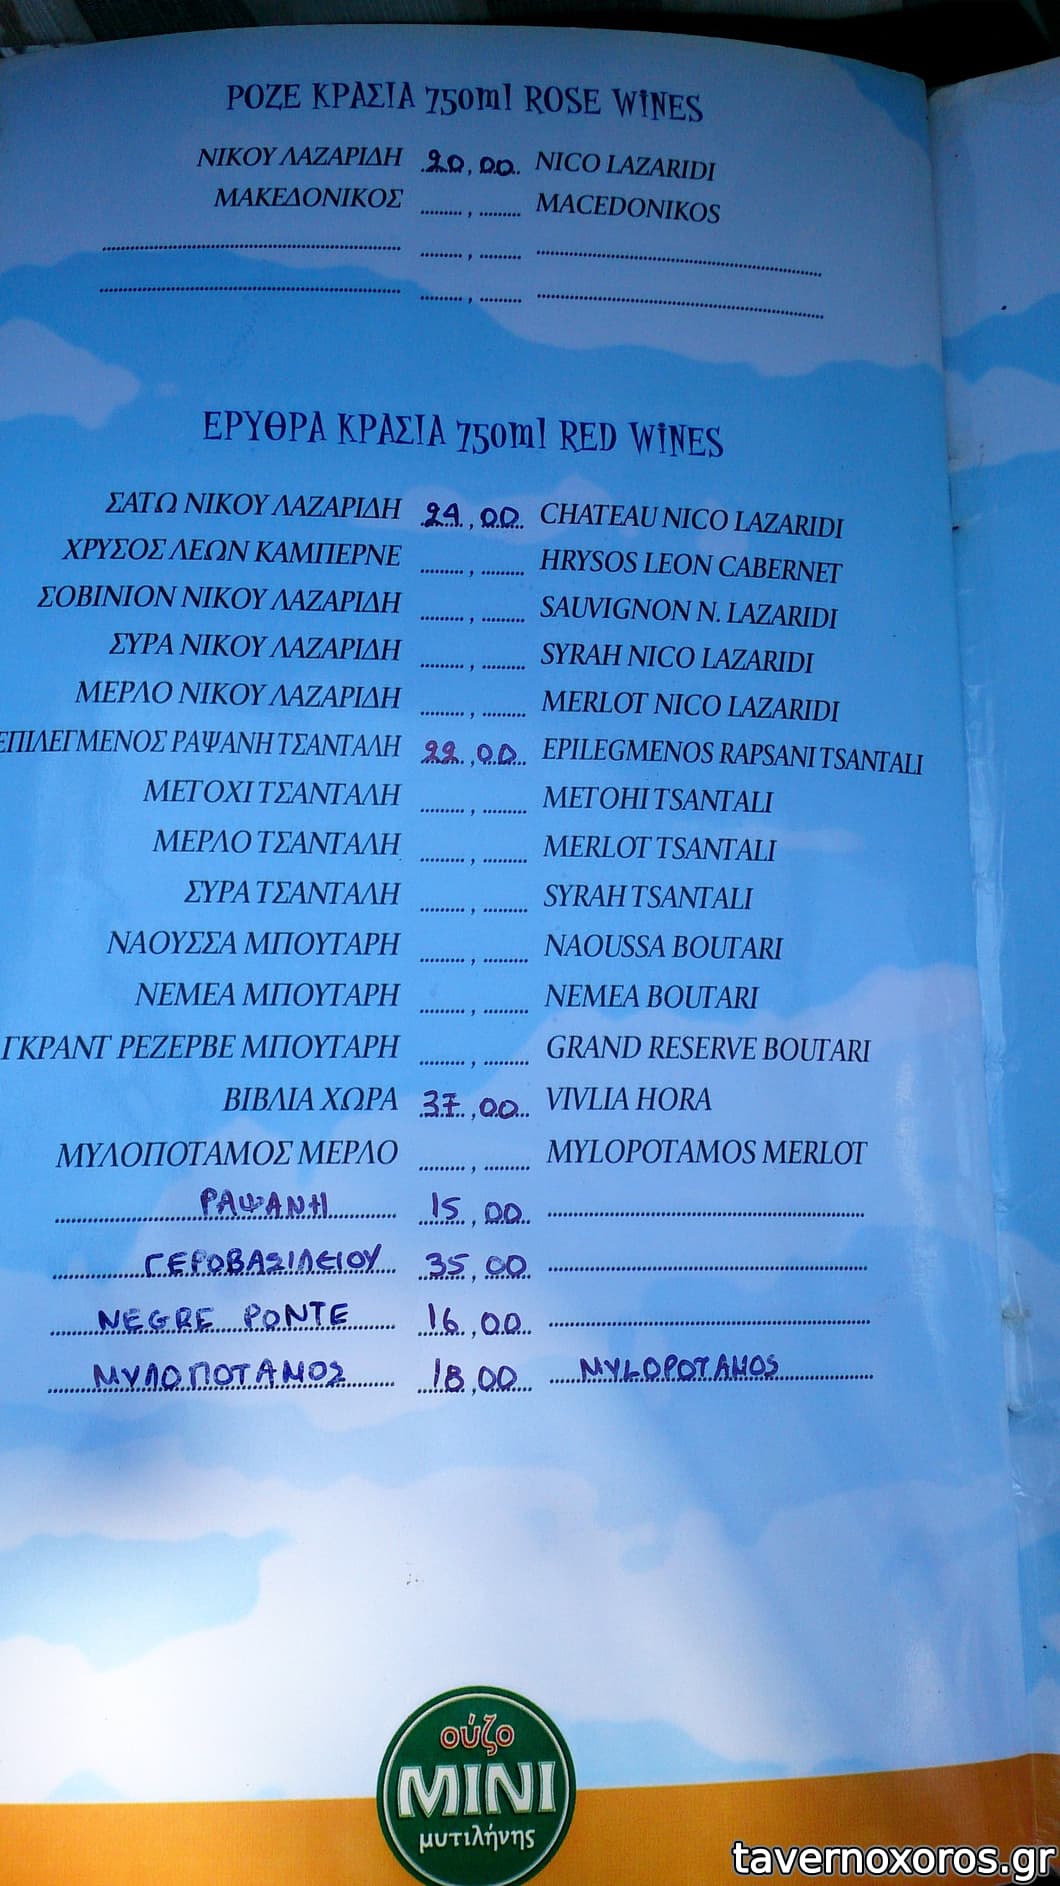 ΡΟΖΕ ΚΡΑΣΙΑ 750ml ROSE WINES
ΝΙΚΟΥ ΛΑΖΑΡΙΔΗ 20,00 NICO LAZARIDI
ΜΑΚΕΔΟΝΙΚΟΣ ........,........ MACEDONIKOS
ΕΡΥΘΡΑ ΚΡΑΣΙΑ 750ml RED WINES
ΣΑΤΩ ΝΙΚΟΥ ΛΑΖΑΡΙΔΗ 24,00 CHATEAU NICO LAZARIDI
ΧΡΥΣΟΣ ΛΕΩΝ ΚΑΜΠΕΡΝΕ ........,........ HRYSOS LEON CABERNET
ΣΟΒΙΝΙΟΝ ΝΙΚΟΥ ΛΑΖΑΡΙΔΗ ........,........ SAUVIGNON N. LAZARIDI
ΣΥΡΑ ΝΙΚΟΥ ΛΑΖΑΡΙΔΗ ........,........ SYRAH NICO LAZARIDI
ΜΕΡΛΟ ΝΙΚΟΥ ΛΑΖΑΡΙΔΗ ........,........ MERLOT NICO LAZARIDI
ΕΠΙΛΕΓΜΕΝΟΣ ΡΑΨΑΝΗ ΤΣΑΝΤΑΛΗ 22,00 EPILEGMENOS RAPSANI TSANTALI
ΜΕΤΟΧΙ ΤΣΑΝΤΑΛΗ ........,........ METOHI TSANTALI
ΜΕΡΛΟ ΤΣΑΝΤΑΛΗ ........,........ MERLOT TSANTALI
ΣΥΡΑ ΤΣΑΝΤΑΛΗ ........,........ SYRAH TSANTALI
ΝΑΟΥΣΣΑ ΜΠΟΥΤΑΡΗ ........,........ NAOUSSA BOUTARI
ΝΕΜΕΑ ΜΠΟΥΤΑΡΗ ........,........ NEMEA BOUTARI
ΓΚΡΑΝΤ ΡΕΖΕΡΒΕ ΜΠΟΥΤΑΡΗ ........,........ GRAND RESERVE BOUTARI
ΒΙΒΛΙΑ ΧΩΡΑ 37,00 VIVLIA HORA
ΜΥΛΟΠΟΤΑΜΟΣ ΜΕΡΛΟ ........,........ MYLOPOTAMOS MERLOT
ΡΑΨΑΝΗ 15,00
ΓΕΡΟΒΑΣΙΛΕΙΟΥ 35,00
NEGRE PONTE 16,00
ΜΥΛΟΠΟΤΑΜΟΣ 18,00 MYLOPOTAMOS
ούζο
MINI
μυτιλήνης
tavernoxoros.gr